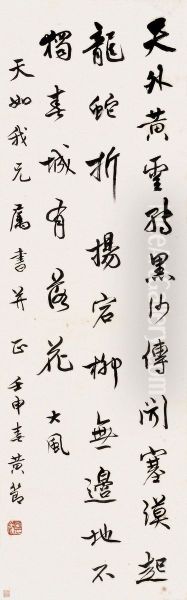 天外黃雲轉黑沙傳聞塞漠起
龍蛇折揚宮柳無邊地不
獨春城有落花 大風
天如我兄屬書并正 壬申春黃節